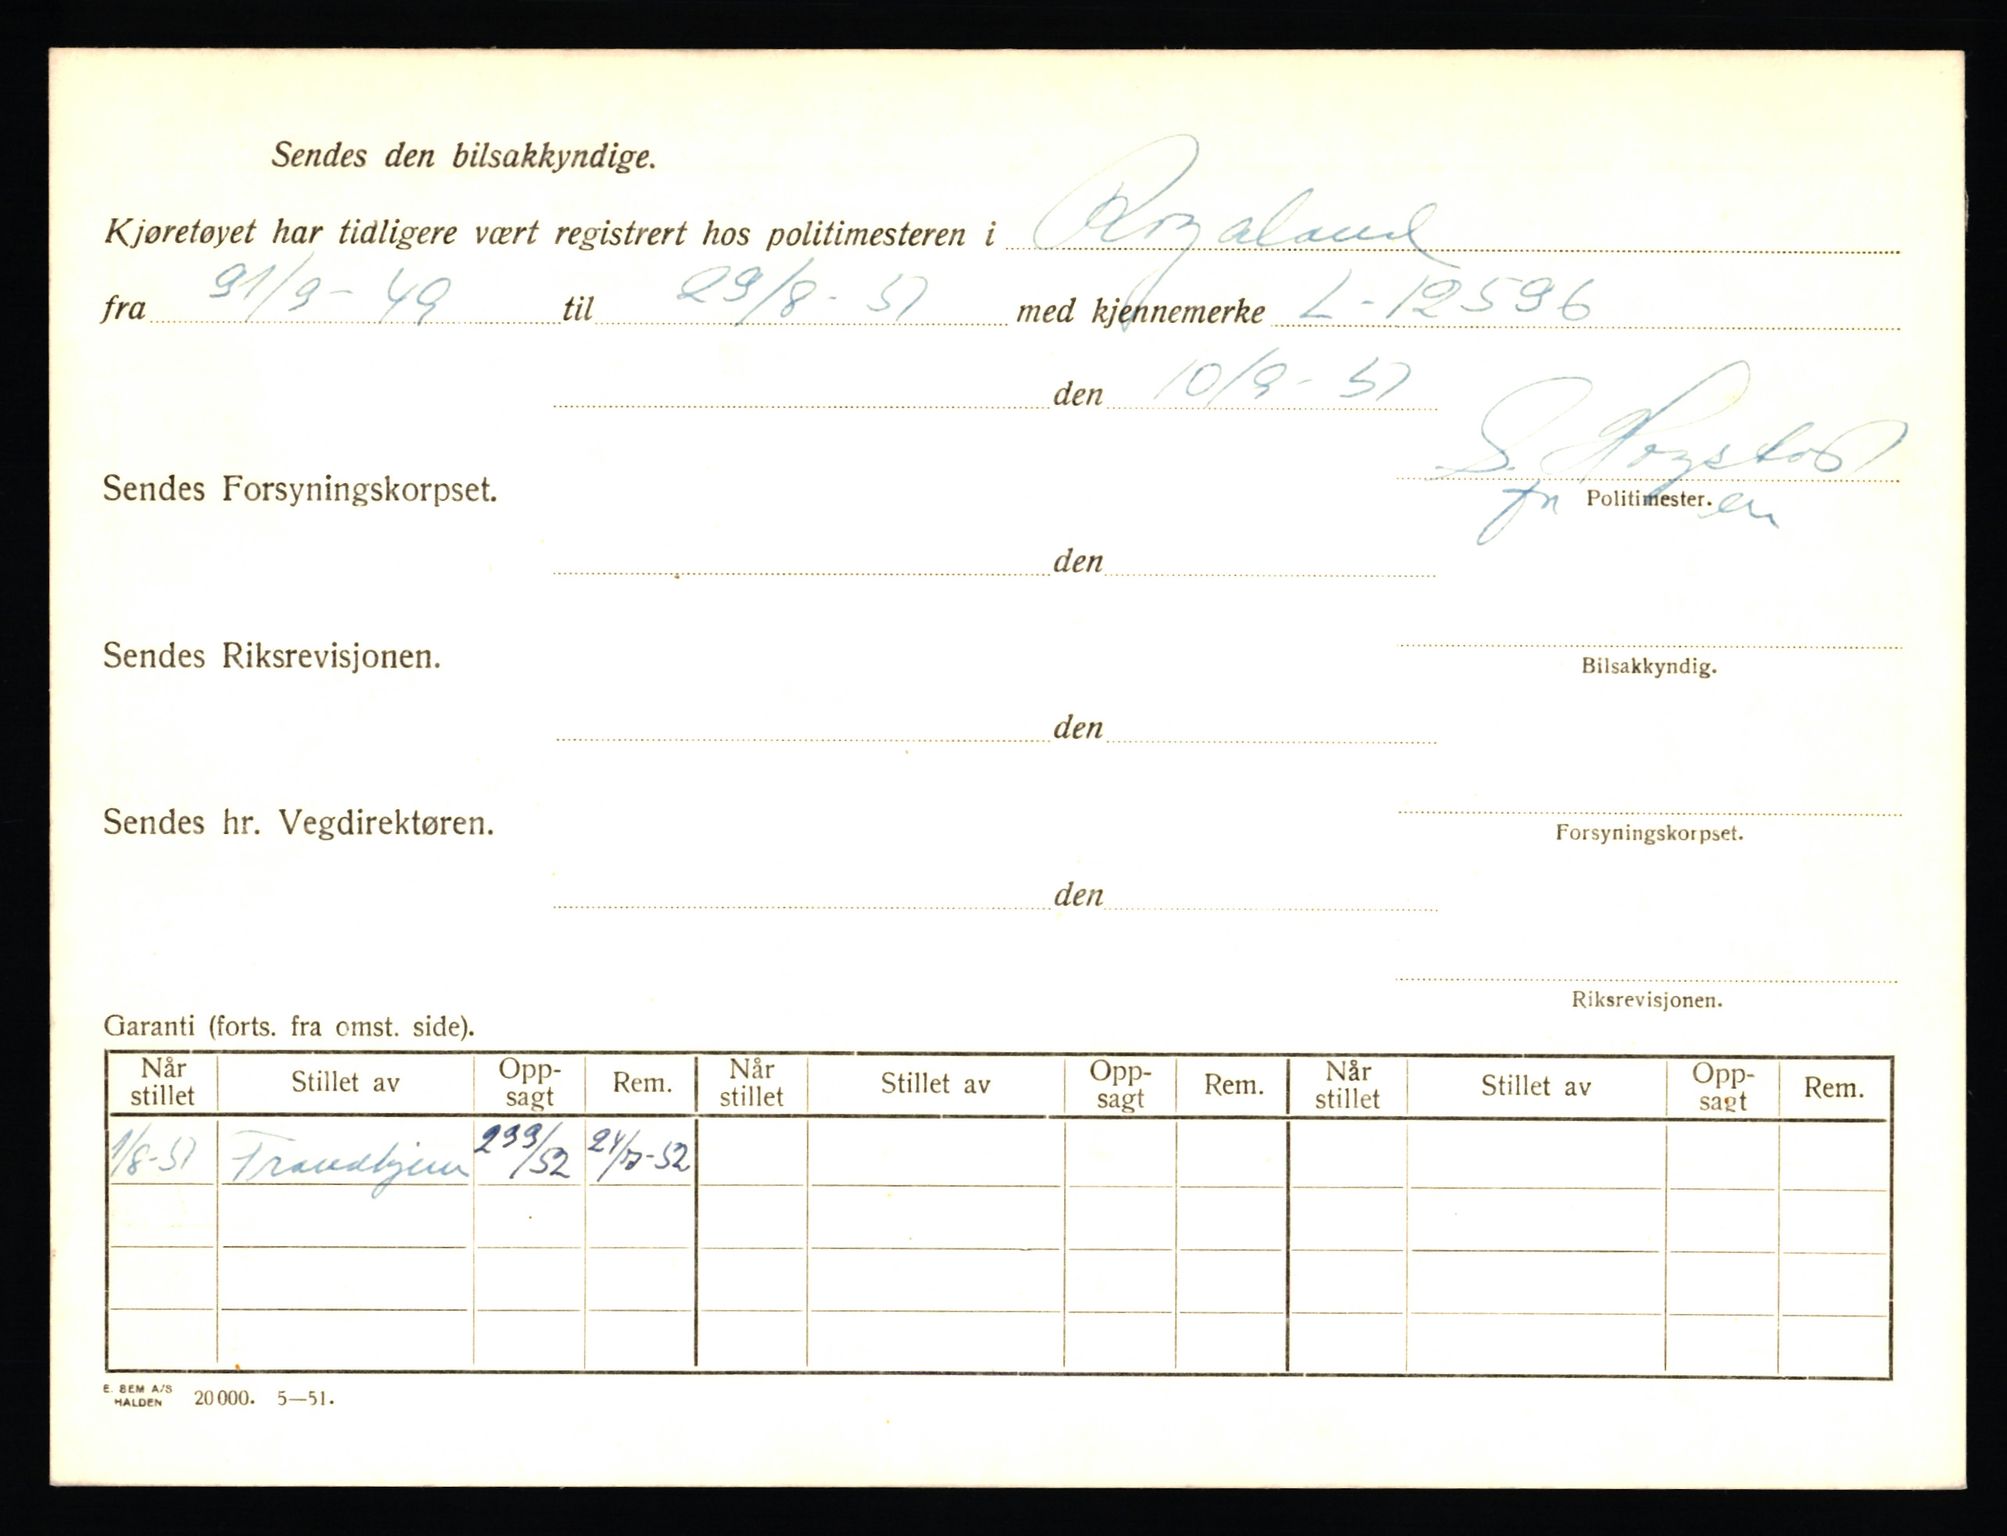 Sendes den bilsakkyndige.
Kjøretøyet har tidligere vært registrert hos politimesteren i Rogaland
fra 21/9-49 til 29/8-51 med kjennemerke L-12596
den 10/9-51
Sendes Forsyningskorpset.
Politimester.
den
Sendes Riksrevisjonen.
Bilsakkyndig.
den
Sendes hr. Vegdirektøren.
Forsyningskorpset.
den
Riksrevisjonen.
Garanti (forts. fra omst. side).
Når stillet Stillet av Opp-sagt Rem. Når stillet Stillet av Opp-sagt Rem. Når stillet Stillet av Opp-sagt Rem.
1/8-51 Trondhjem 299/52
E. SEM A/S
HALDEN 20 000. 5—51.